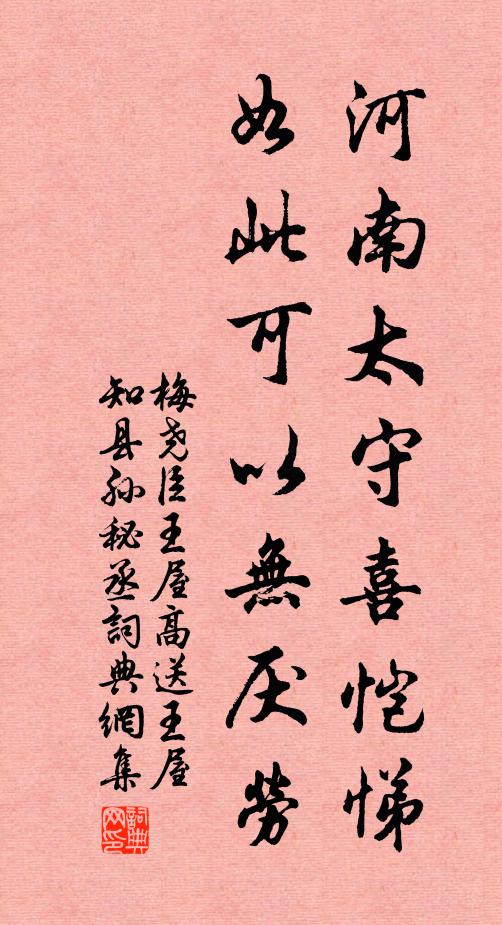 河南太守喜恺悌
如此可以無厌勞
梅尧臣王屋高送王屋
知县孙秘丞詞典網集
詞典网印